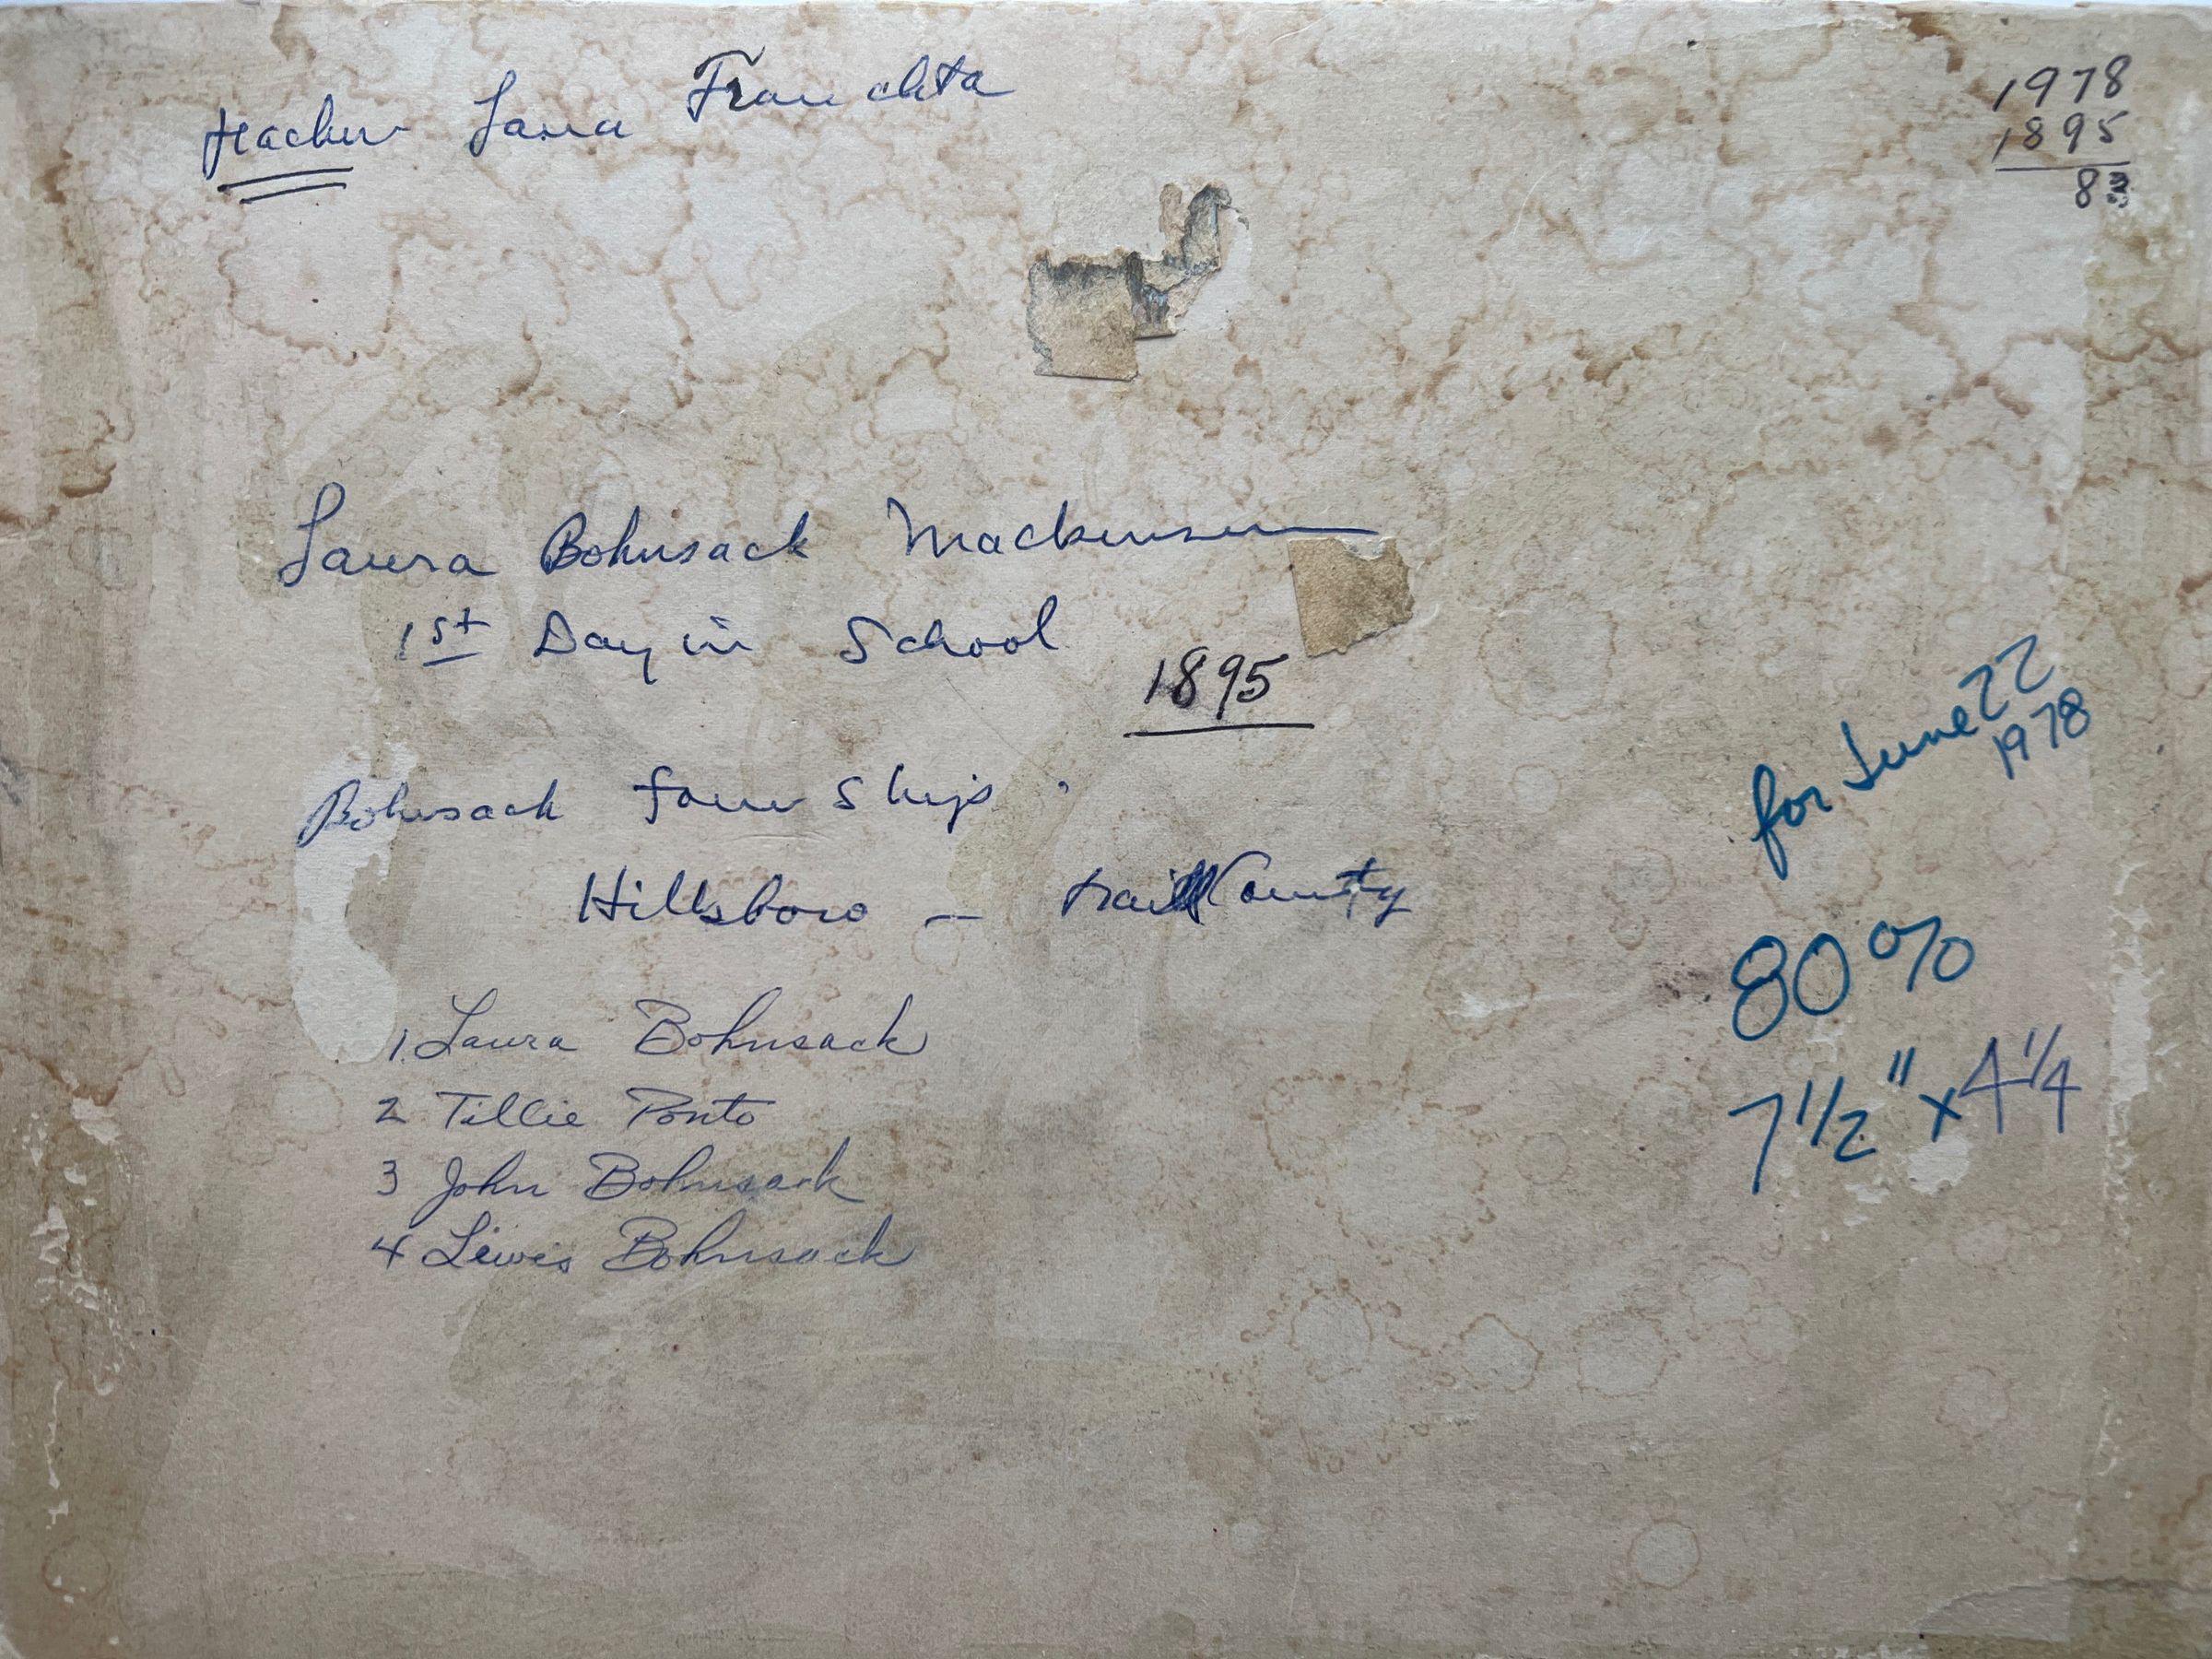 teacher
1978
1895
83
Laura Bohnsack Mackensen
1st Day in School
1895
Bohnsack Township
Hillsboro — Traill County
for June 22
1978
80%
7 1/2" x 4 1/4
1. Laura Bohnsack
2 Tillie Ponto
3 John Bohnsack
4 Lewis Bohnsack